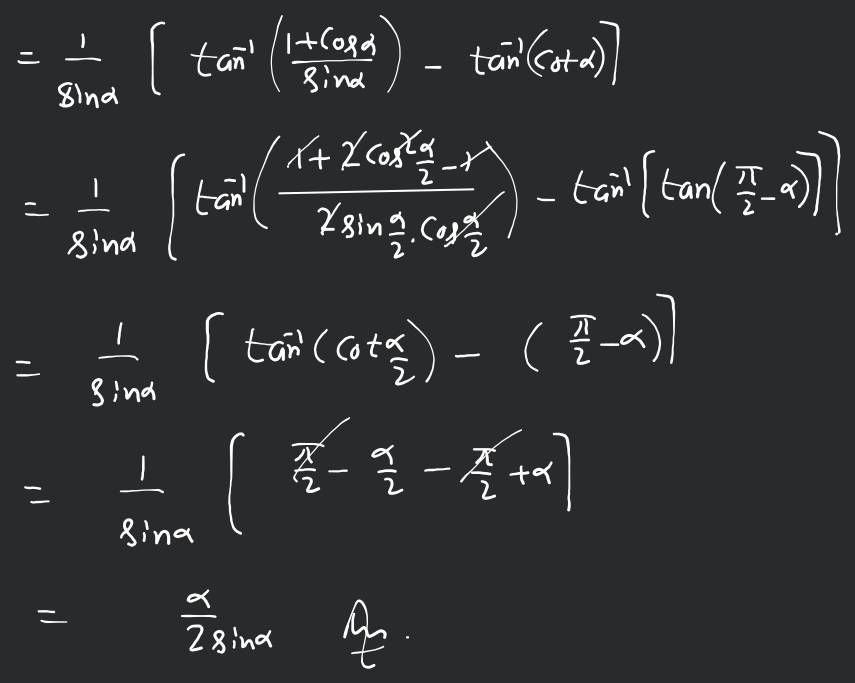 = 1/sinα [ tan⁻¹((1+cosα)/sinα) − tan⁻¹(cotα) ]
= 1/sinα [ tan⁻¹((1+2cos²α/2−1)/(2sinα/2.cosα/2)) − tan⁻¹[tan(π/2−α)] ]
= 1/sinα [ tan⁻¹(cotα/2) − (π/2−α) ]
= 1/sinα [ π/2 − α/2 − π/2 + α ]
= α/2sinα